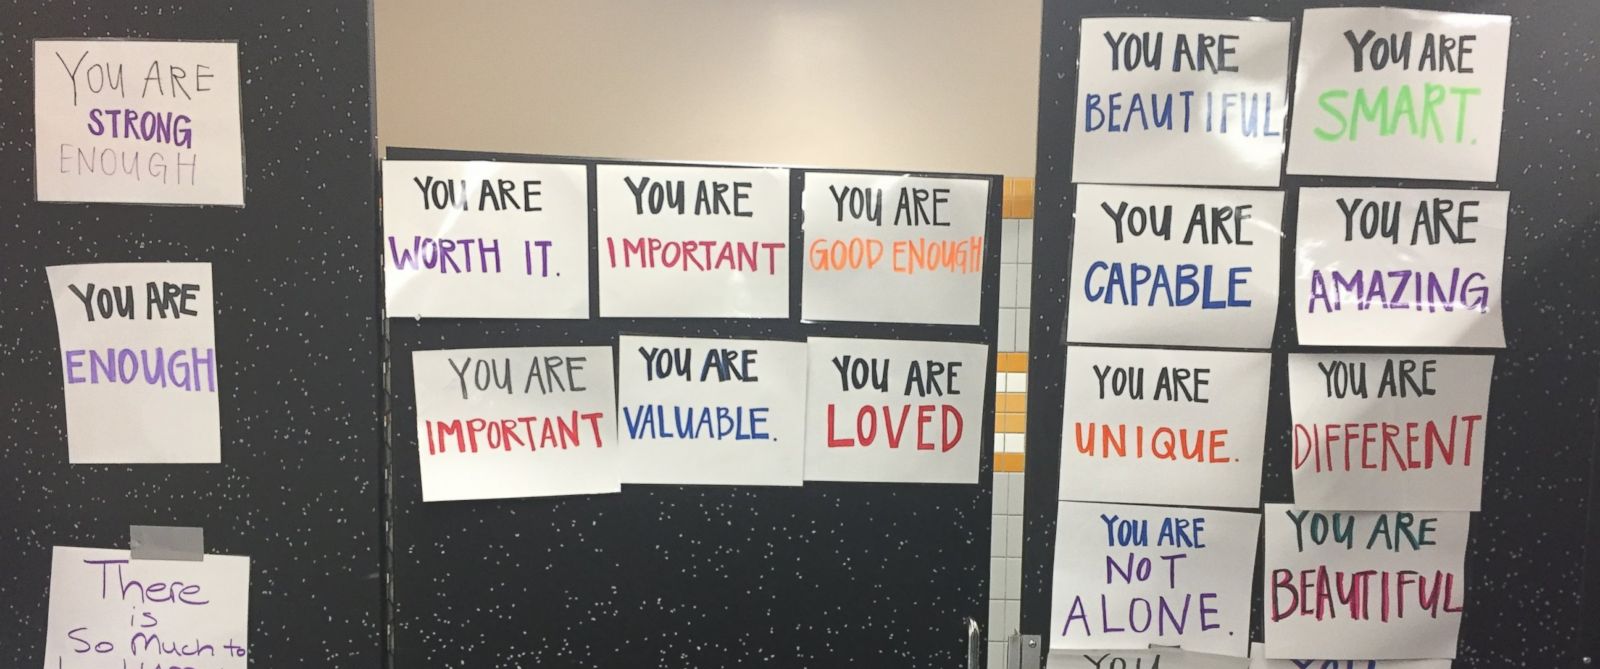 YOU ARE
STRONG
ENOUGH
YOU ARE
ENOUGH
There
is
So Much to
YOU ARE
WORTH IT.
YOU ARE
IMPORTANT
YOU ARE
GOOD ENOUGH
YOU ARE
IMPORTANT
YOU ARE
VALUABLE.
YOU ARE
LOVED
YOU ARE
BEAUTIFUL
YOU ARE
SMART.
YOU ARE
CAPABLE
YOU ARE
AMAZING
YOU ARE
UNIQUE.
YOU ARE
DIFFERENT
YOU ARE
NOT
ALONE.
YOU ARE
BEAUTIFUL
YOU